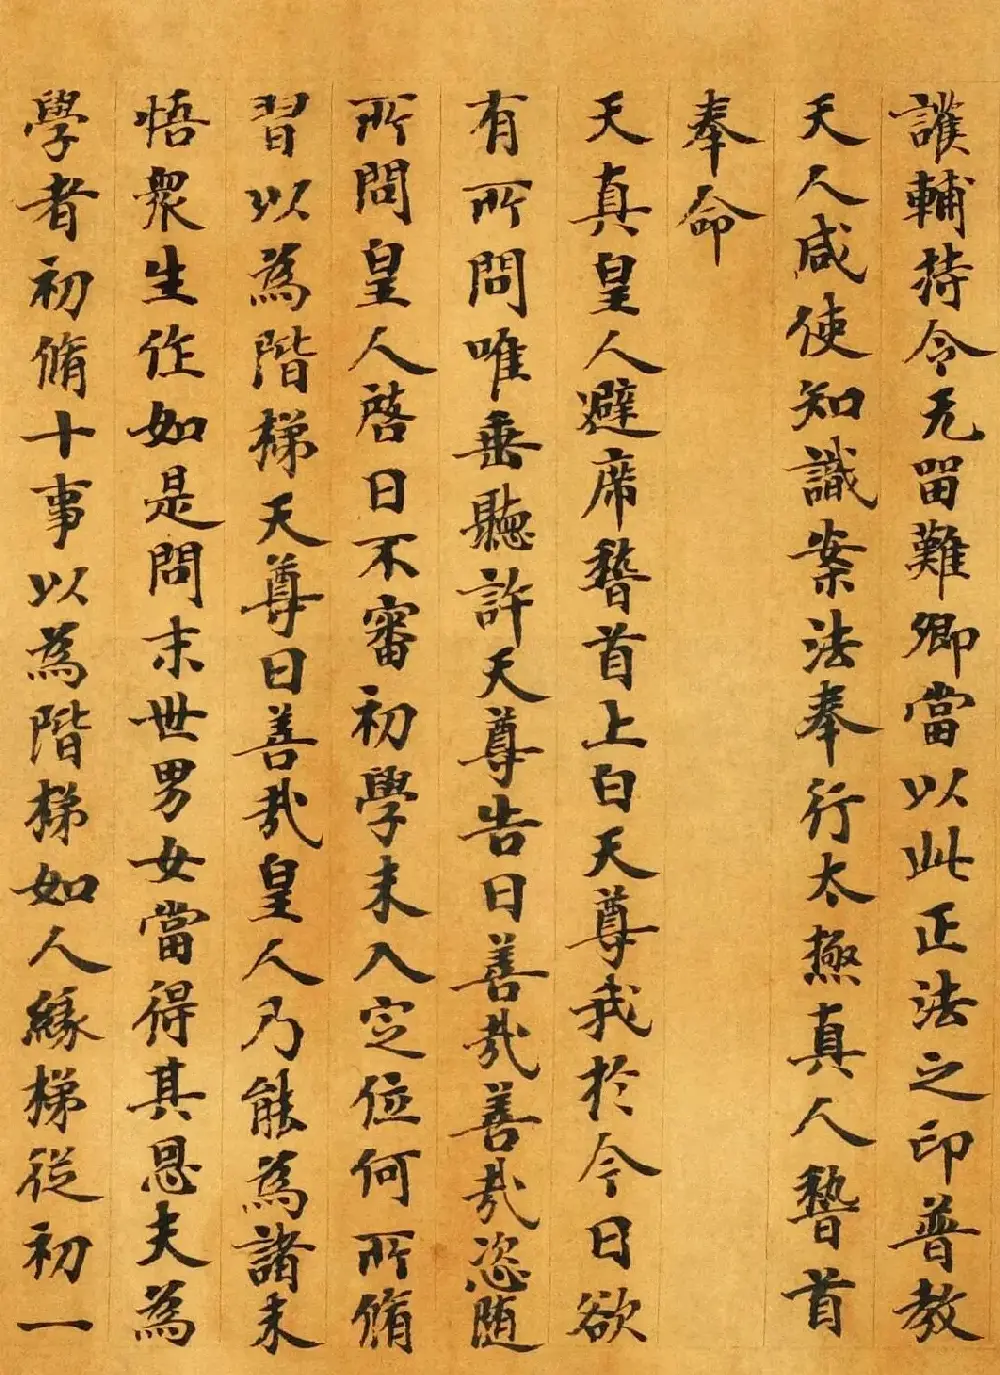 護輔持令无留難卿當以此正法之印普教
天人咸使知識案法奉行太極真人稽首
奉命
天真皇人避席稽首上白天尊我於今日欲
有所問唯垂聽許天尊告曰善哉善哉恣随
所問皇人啓曰不審初學未入定位何所脩
習以為階梯天尊曰善哉皇人乃能為諸未
悟衆生作如是問末世男女當得其恩夫為
學者初脩十事以為階梯如人緣梯從初一